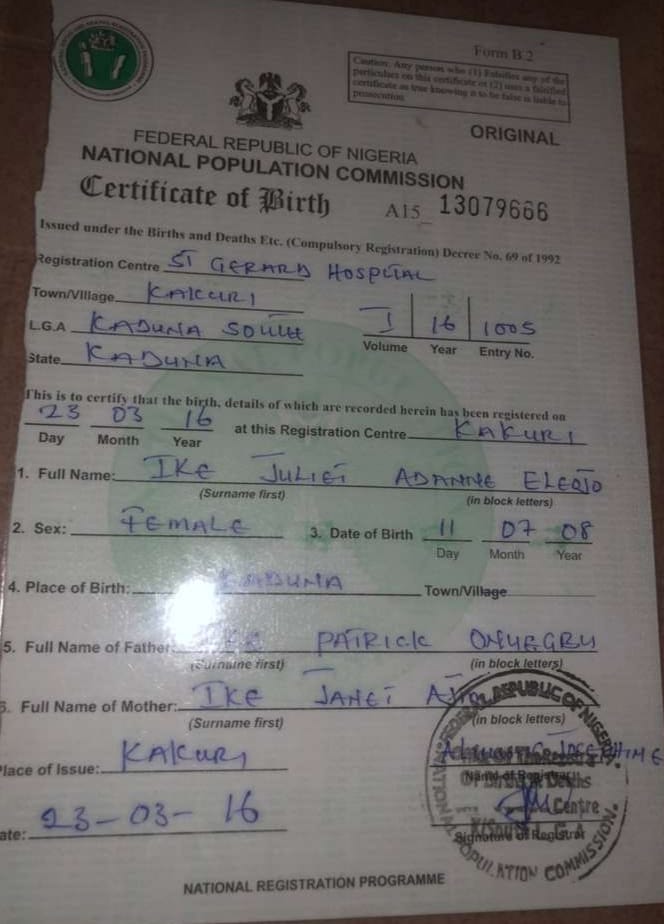 Form B 2
Caution: Any person who (1) Falsifies any of the
particulars on this certificate or (2) uses a falsified
certificate as true knowing it to be false is liable to
prosecution
ORIGINAL
FEDERAL REPUBLIC OF NIGERIA
NATIONAL POPULATION COMMISSION
Certificate of Birth A15 13079666
Issued under the Births and Deaths Etc. (Compulsory Registration) Decree No. 69 of 1992
Registration Centre ST GERARD HOSPITAL
Town/Village KAKURI
L.G.A KADUNA SOUTH
State KADUNA
I 16 1005
Volume Year Entry No.
This is to certify that the birth, details of which are recorded herein has been registered on
23 03 16 at this Registration Centre KAKURI
Day Month Year
1. Full Name: IKE JULIET ADANNE ELEOJO
(Surname first) (in block letters)
2. Sex: FEMALE 3. Date of Birth 11 07 08
Day Month Year
4. Place of Birth: KADUNA Town/Village
5. Full Name of Father: IKE PATRICK ONUEGBU
(Surname first) (in block letters)
6. Full Name of Mother: IKE JANET
(Surname first) (in block letters)
Place of Issue: KAKURI
Name of Registrar
Date: 23-03-16
Signature of Registrar
FEDERAL REPUBLIC OF NIGERIA
NATIONAL POPULATION COMMISSION
Centre
NATIONAL REGISTRATION PROGRAMME